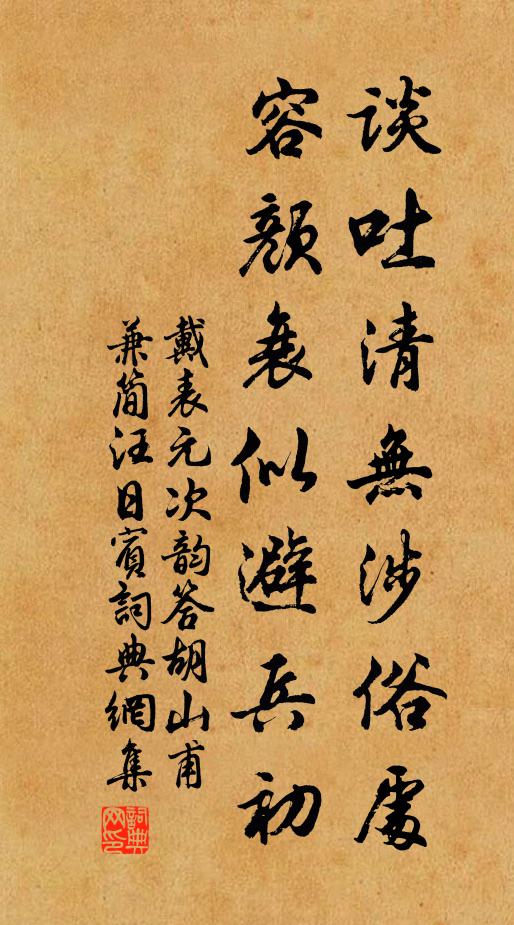 談吐清無涉俗處
容顏衰似避兵初
戴表元次韵答胡山甫
兼簡汪日賓詞典網集
詞典网印